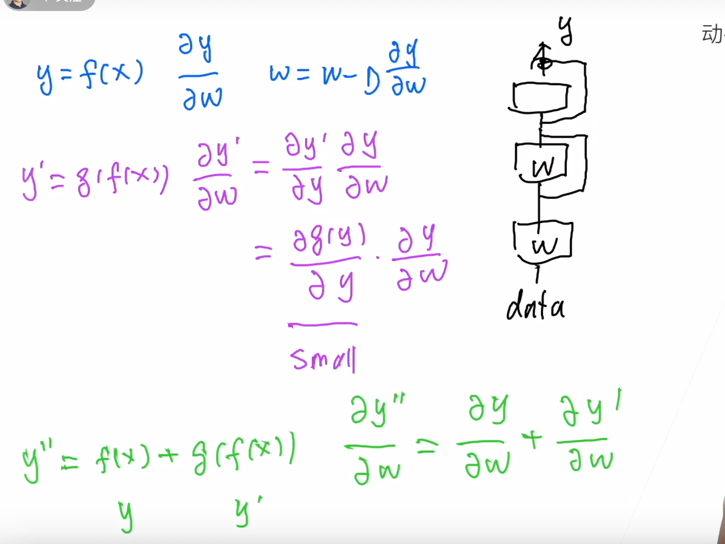 y = f(x) ∂y/∂w w = w - η ∂y/∂w
y' = g(f(x)) ∂y'/∂w = ∂y'/∂y ∂y/∂w
= ∂g(y)/∂y · ∂y/∂w
small
y'' = f(x) + g(f(x)) ∂y''/∂w = ∂y/∂w + ∂y'/∂w
y y'
y
w
w
data
动